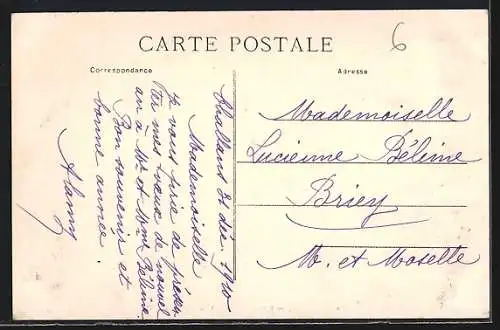 CARTE POSTALE
6
Correspondance
Adresse
31 déc. 1910
Mademoiselle
Je vous prie de présen
ter mes vœux de nouvel
an à Mr et Mme Béline.
Bon souvenir et
bonne année.
Mademoiselle
Lucienne Béline
Briey
M. et Moselle